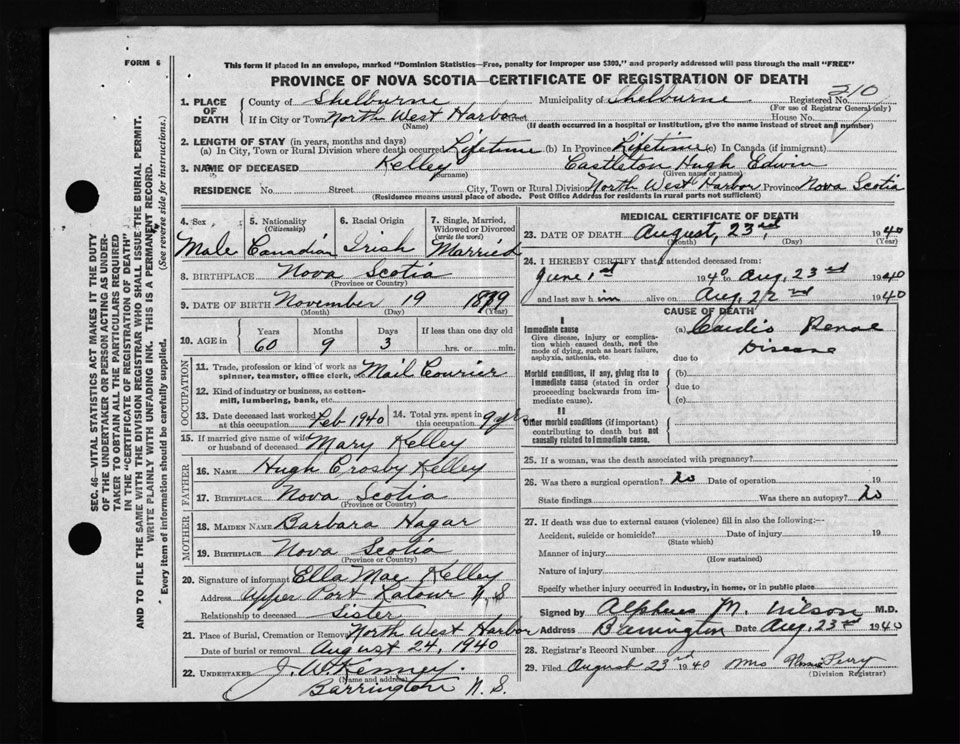 FORM 6
This form if placed in an envelope, marked "Dominion Statistics—Free, penalty for improper use $300," and properly addressed will pass through the mail "FREE"
PROVINCE OF NOVA SCOTIA—CERTIFICATE OF REGISTRATION OF DEATH
1. PLACE OF DEATH
County of Shelburne Municipality of Shelburne Registered No. 210
(For use of Registrar General only)
If in City or Town North West Harbor Street House No.
(Name) (If death occurred in a hospital or institution, give the name instead of street and number)
2. LENGTH OF STAY (in years, months and days)
(a) In City, Town or Rural Division where death occurred Lifetime (b) In Province Lifetime (c) In Canada (if immigrant)
3. NAME OF DECEASED Kelley Castleton Hugh Edwin
(Surname) (Given name or names)
RESIDENCE No. Street City, Town or Rural Division North West Harbor Province Nova Scotia
(Residence means usual place of abode. Post Office Address for residents in rural parts not sufficient)
4. Sex Male
5. Nationality (Citizenship) Canadian
6. Racial Origin Irish
7. Single, Married, Widowed or Divorced (write the word) Married
8. BIRTHPLACE Nova Scotia
(Province or Country)
9. DATE OF BIRTH November 19 1879
(Month) (Day) (Year)
10. AGE in Years 60 Months 9 Days 3 If less than one day old hrs. or min.
OCCUPATION
11. Trade, profession or kind of work as spinner, teamster, office clerk, etc. Mail Courier
12. Kind of industry or business, as cotton-mill, lumbering, bank, etc.
13. Date deceased last worked at this occupation Feb 1940
14. Total yrs. spent in this occupation 9 yrs
15. If married give name of wife or husband of deceased Mary Kelley
FATHER
16. NAME Hugh Crosby Kelley
17. BIRTHPLACE Nova Scotia
(Province or Country)
MOTHER
18. MAIDEN NAME Barbara Hagar
19. BIRTHPLACE Nova Scotia
(Province or Country)
20. Signature of informant Ella Mae Kelley
Address Upper Port Latour N.S
Relationship to deceased Sister
21. Place of Burial, Cremation or Removal North West Harbor
Date of burial or removal August 24, 1940
22. UNDERTAKER J. W. Kenney.
(Name and address)
Barrington N.S.
MEDICAL CERTIFICATE OF DEATH
23. DATE OF DEATH August, 23rd, 1940
(Month) (Day) (Year)
24. I HEREBY CERTIFY that I attended deceased from:
June 1st 1940 to Aug. 23rd 1940
and last saw him alive on Aug, 22nd 1940
CAUSE OF DEATH
I
Immediate cause
Give disease, injury or complication which caused death, not the mode of dying, such as heart failure, asphyxia, asthenia, etc.
(a) Cardio Renal
Disease
due to
Morbid conditions, if any, giving rise to immediate cause (stated in order proceeding backwards from immediate cause).
(b)
due to
(c)
II
Other morbid conditions (if important) contributing to death but not causally related to immediate cause.
25. If a woman, was the death associated with pregnancy?
26. Was there a surgical operation? No Date of operation 19
State findings Was there an autopsy? No
27. If death was due to external causes (violence) fill in also the following:—
Accident, suicide or homicide? Date of injury 19
(State which)
Manner of injury
(How sustained)
Nature of injury
Specify whether injury occurred in industry, in home, or in public place
Signed by Alpheus M. Wilson M.D.
Address Barrington Date Aug, 23rd 1940
28. Registrar's Record Number
29. Filed August 23rd 1940 Mrs Perry
(Division Registrar)
SEC. 46—VITAL STATISTICS ACT MAKES IT THE DUTY
OF THE UNDERTAKER OR PERSON ACTING AS UNDER-
TAKER TO OBTAIN ALL THE PARTICULARS REQUIRED
IN THE "CERTIFICATE OF REGISTRATION OF DEATH"
AND TO FILE THE SAME WITH THE DIVISION REGISTRAR WHO SHALL ISSUE THE BURIAL PERMIT.
WRITE PLAINLY WITH UNFADING INK. THIS IS A PERMANENT RECORD.
Every item of information should be carefully supplied. (See reverse side for instructions.)